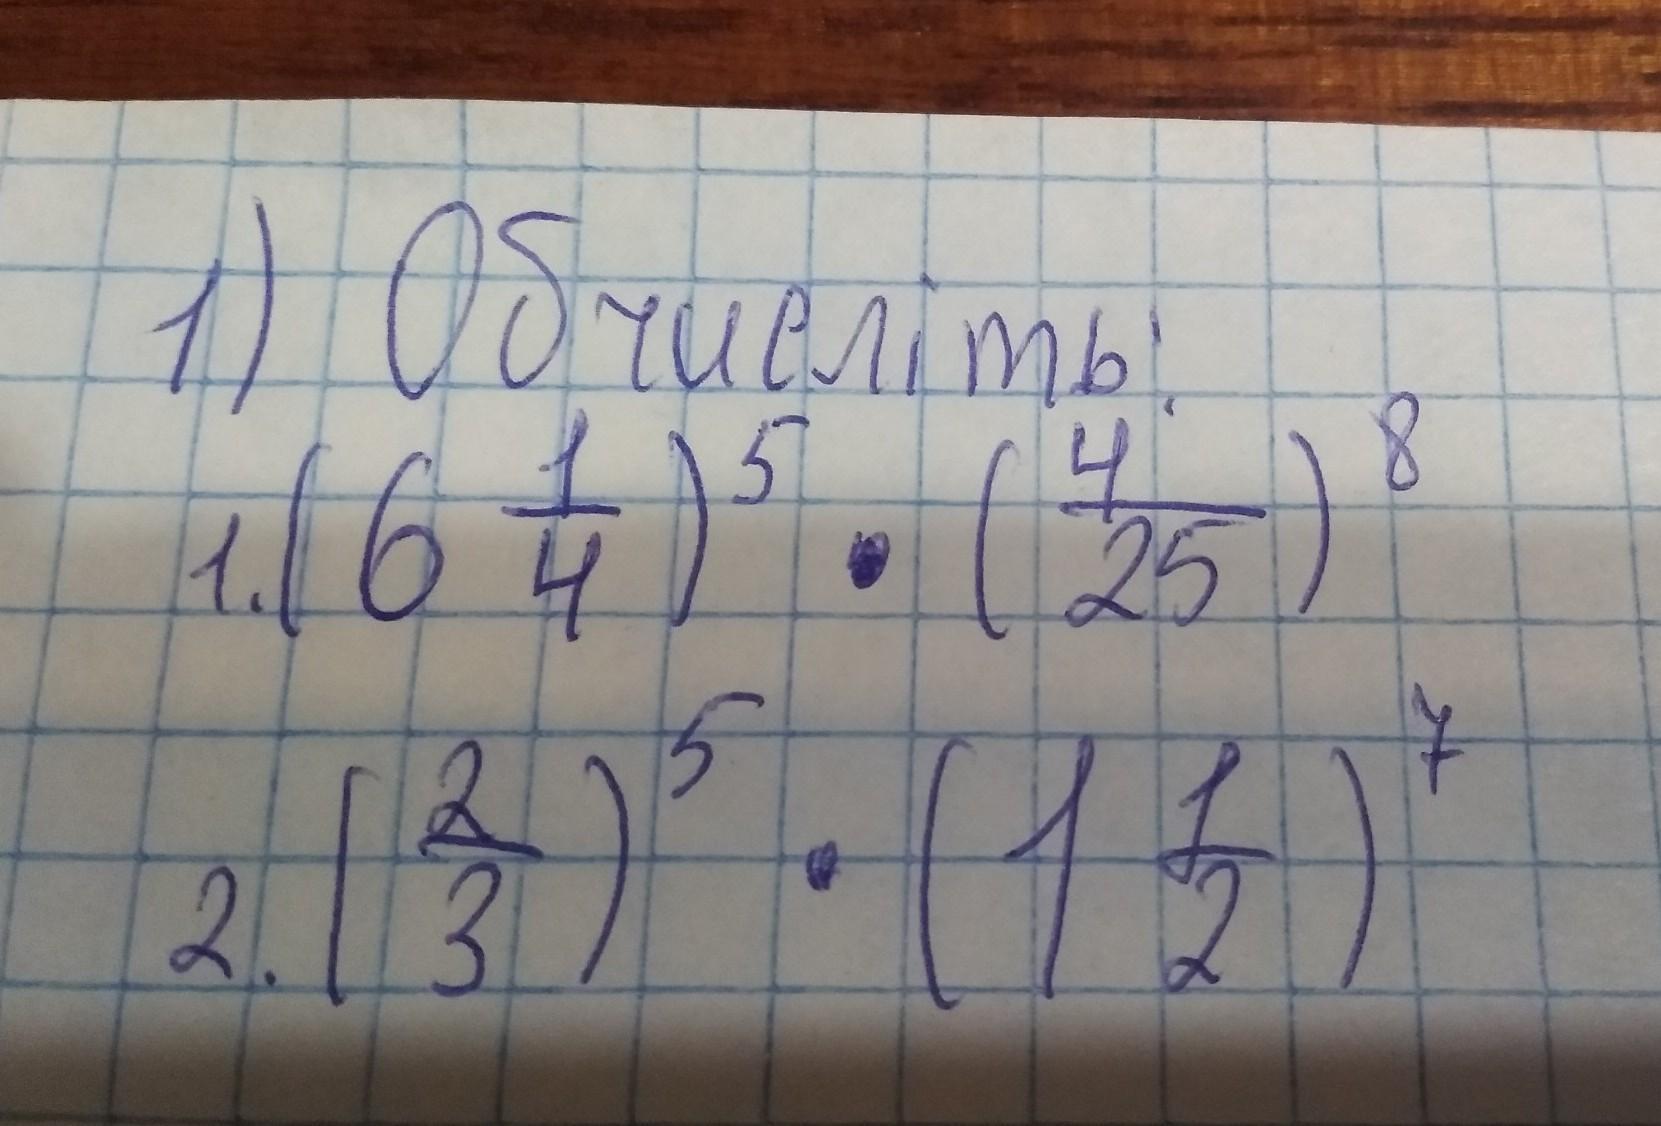 1) Обчисліть:
1. (6 1/4)^5 • (4/25)^8
2. (2/3)^5 • (1 1/2)^7